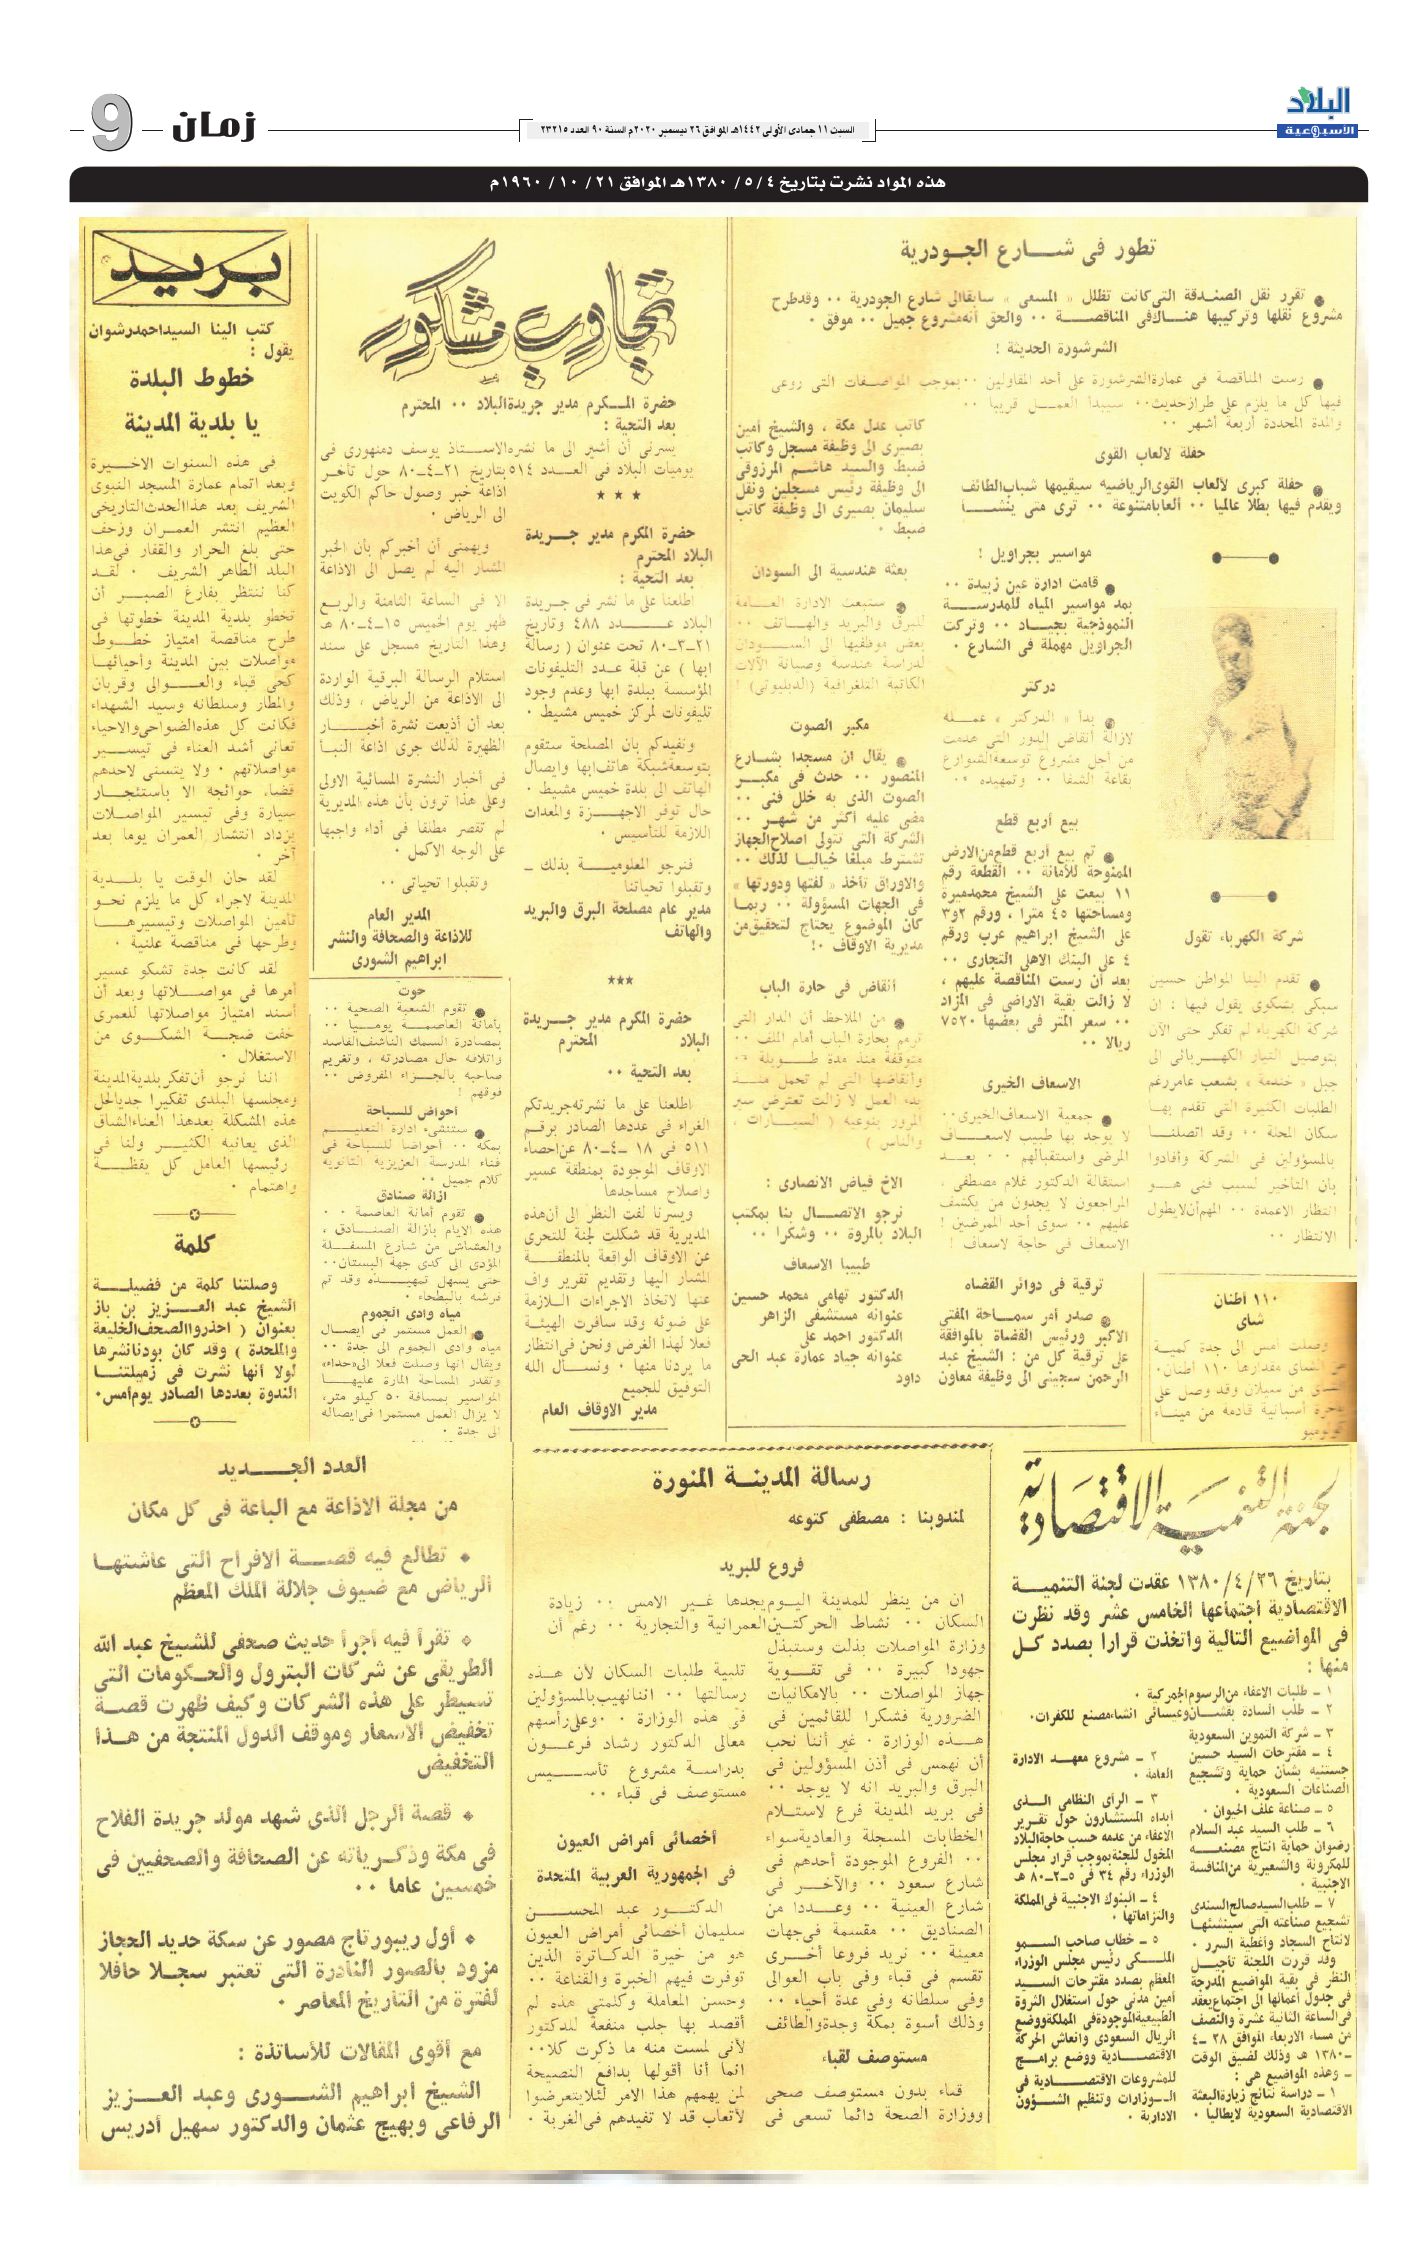 البلاد
الأسبوعية
السبت ١١ جمادى الأولى ١٤٤٢هـ الموافق ٢٦ ديسمبر ٢٠٢٠م السنة ٩٠ العدد ٢٣٢١٥
زمان
9
هذه المواد نشرت بتاريخ ٤ /٥ /١٣٨٠هـ الموافق ٢١ / ١٠ / ١٩٦٠م
تطور فى شارع الجودرية
تقرر نقل الصندقة التى كانت تظلل « المسعى » سابقا الى شارع الجودرية ٠٠ وقد طرح
مشروع نقلها وتركيبها هناك فى المناقصة ٠٠ والحق أنه مشروع جميل ٠٠ موفق ٠
الشرشورة الحديثة !
رست المناقصة فى عمارة الشرشورة على أحد المقاولين ٠٠ بموجب المواصفات التى روعى
فيها كل ما يلزم على طراز حديث ٠٠ سيبدأ العمل قريبا ٠٠
والمدة المحددة أربعة أشهر ٠٠
حفلة لالعاب القوى
حفلة كبرى لالعاب القوى الرياضيه سيقيمها شباب الطائف
ويقدم فيها بطلا عالميا ٠٠ ألعابا متنوعة ٠٠ ترى متى ينشأ
شركة الكهرباء تقول
تقدم الينا المواطن حسين
سبكى بشكوى يقول فيها : ان
شركة الكهرباء لم تفكر حتى الآن
بتوصيل التيار الكهربائى الى
جبل « خندمة » بشعب عامر رغم
الطلبات الكثيرة التى تقدم بها
سكان المحلة ٠٠ وقد اتصلنا
بالمسؤولين فى الشركة وأفادوا
بان التأخير لسبب فنى هو
انتظار الاعمدة ٠٠ المهم أن لا يطول
الانتظار ٠٠
١١٠ أطنان
شاى
وصلت أمس الى جدة كمية
من الشاى مقدارها ١١٠ أطنان ٠
من سيلان وقد وصل على
أسبانية قادمة من ميناء
كولومبو
مواسير بجراويل !
قامت ادارة عين زبيدة ٠٠
بمد مواسير المياه للمدرسة
النموذجية بجياد ٠٠ وتركت
الجراويل مهملة فى الشارع ٠
دركتر
بدأ « الدركتر » عمله
لازالة أنقاض الدور التى هدمت
من أجل مشروع توسعة الشوارع
بقاعة الشفا ٠٠ وتمهيده ٠٠
بيع أربع قطع
تم بيع أربع قطع من الارض
الممنوحة للأمانة ٠٠ القطعة رقم
١١ بيعت على الشيخ محمد ميرة
ومساحتها ٤٥ مترا ، ورقم ٢و٣
على الشيخ ابراهيم عرب ورقم
٤ على البنك الاهلى التجارى ٠٠
بعد أن رست المناقصة عليهم ،
لا زالت بقية الاراضى فى المزاد
٠٠ سعر المتر فى بعضها ٧٥٢٠
ريالا ٠٠
الاسعاف الخيرى
جمعية الاسعاف الخيرى ٠٠
لا يوجد بها طبيب لاسعاف
المرضى واستقبالهم ٠٠ بعد
استقالة الدكتور غلام مصطفى ،
المراجعون لا يجدون من يكشف
عليهم ٠٠ سوى أحد الممرضين !
الاسعاف فى حاجة لاسعاف !
ترقية فى دوائر القضاه
صدر أمر سماحة المفتى
الاكبر ورئيس القضاة بالموافقة
على ترقية كل من : الشيخ عبد
الرحمن سجينى الى وظيفة معاون
كاتب عدل مكة ، والشيخ أمين
بصيرى الى وظيفة مسجل وكاتب
ضبط والسيد هاشم المرزوقى
الى وظيفة رئيس مسجلين ونقل
سليمان بصيرى الى وظيفة كاتب
ضبط ٠
بعثة هندسية الى السودان
ستبعث الادارة العامة
للبرق والبريد والهاتف ٠٠
بعض موظفيها الى السودان
لدراسة هندسة وصيانة الآلات
الكاتبة التلغرافية (الدبليوتى) !
مكبر الصوت
يقال ان مسجدا بشارع
المنصور ٠٠ حدث فى مكبر
الصوت الذى به خلل فنى ٠٠
مضى عليه أكثر من شهر ٠٠
الشركة التى تتولى اصلاح الجهاز
تشترط مبلغا خياليا لذلك ٠٠
والاوراق تأخذ « لفتها ودورتها »
فى الجهات المسؤولة ٠٠ ربما
كان الموضوع يحتاج لتحقيق من
مديرية الاوقاف ٠!
أنقاض فى حارة الباب
من الملاحظ أن الدار التى
ترمم بحارة الباب أمام الملف ٠٠
متوقفة منذ مدة طويلة ٠٠
وأنقاضها التى لم تحمل منذ
بدء العمل لا زالت تعترض سير
المرور بنوعيه ( السيارات ،
والناس )
الاخ فياض الانصارى :
نرجو الاتصال بنا بمكتب
البلاد بالمروة ٠٠ وشكرا ٠٠
طبيبا الاسعاف
الدكتور تهامى محمد حسين
عنوانه مستشفى الزاهر
الدكتور احمد على
عنوانه جياد عمارة عبد الحى
داود
تجاوب مشكور
حضرة المكرم مدير جريدة البلاد ٠٠ المحترم
بعد التحية :
يسرنى أن أشير الى ما نشره الاستاذ يوسف دمنهورى فى
يوميات البلاد فى العدد ٥١٤ بتاريخ ٢١-٤-٨٠ حول تأخر
اذاعة خبر وصول حاكم الكويت
الى الرياض ٠
ويهمنى أن أخبركم بان الخبر
المشار اليه لم يصل الى الاذاعة
الا فى الساعة الثامنة والربع
ظهر يوم الخميس ١٥-٤-٨٠ هـ
وهذا التاريخ مسجل على سند
استلام الرسالة البرقية الواردة
الى الاذاعة من الرياض ، وذلك
بعد أن أذيعت نشرة أخبار
الظهيرة لذلك جرى اذاعة النبأ
فى أخبار النشرة المسائية الاولى
وعلى هذا ترون بأن هذه المديرية
لم تقصر مطلقا فى أداء واجبها
على الوجه الاكمل ٠
وتقبلوا تحياتى ٠٠
المدير العام
للاذاعة والصحافة والنشر
ابراهيم الشورى
★ ★ ★
حضرة المكرم مدير جريدة
البلاد المحترم
بعد التحية :
اطلعنا على ما نشر فى جريدة
البلاد عدد ٤٨٨ وتاريخ
٢١-٣-٨٠ تحت عنوان ( رسالة
ابها ) عن قلة عدد التليفونات
المؤسسة ببلدة ابها وعدم وجود
تليفونات لمركز خميس مشيط ٠
ونفيدكم بان المصلحة ستقوم
بتوسعة شبكة هاتف ابها وايصال
الهاتف الى بلدة خميس مشيط ٠
حال توفر الاجهزة والمعدات
اللازمة للتأسيس ٠
فنرجو المعلومية بذلك -
وتقبلوا تحياتنا
مدير عام مصلحة البرق والبريد
والهاتف
★★★
حضرة المكرم مدير جريدة
البلاد المحترم
بعد التحية ٠٠
اطلعنا على ما نشرته جريدتكم
الغراء فى عددها الصادر برقم
٥١١ فى ١٨ -٤-٨٠ عن احصاء
الاوقاف الموجودة بمنطقة عسير
واصلاح مساجدها
ويسرنا لفت النظر الى أن هذه
المديرية قد شكلت لجنة للتحرى
عن الاوقاف الواقعة بالمنطقة
المشار اليها وتقديم تقرير واف
عنها لاتخاذ الاجراءات اللازمة
على ضوئه وقد سافرت الهيئة
فعلا لهذا الغرض ونحن فى انتظار
ما يردنا منها ٠ ونسأل الله
التوفيق للجميع
مدير الاوقاف العام
حوت
تقوم الشعبة الصحية ٠٠
بأمانة العاصمة يوميا ٠٠
بمصادرة السمك الناشف الفاسد
واتلافه حال مصادرته ، وتغريم
صاحبه بالجزاء المفروض ٠٠
فوقهم !
أحواض للسباحة
ستنشىء ادارة التعليم
بمكة ٠٠ أحواضا للسباحة فى
فناء المدرسة العزيزية الثانوية
كلام جميل ٠٠
ازالة صنادق
تقوم أمانة العاصمة ٠٠
هذه الايام بازالة الصنادق ،
والعشاش من شارع المسفلة
المؤدى الى كدى جهة البستان ٠٠
حتى يسهل تمهيده وقد تم
فرشه بالبطحاء ٠
مياه وادى الجموم
العمل مستمر فى ايصال
مياه وادى الجموم الى جدة ٠٠
ويقال انها وصلت فعلا الى «حداء»
وتقدر المساحة المارة عليها
المواسير بمسافة ٥٠ كيلو متر،
لا يزال العمل مستمرا فى ايصاله
الى جدة ٠
بريد
كتب الينا السيد احمد رشوان
يقول :
خطوط البلدة
يا بلدية المدينة
فى هذه السنوات الاخيرة
وبعد اتمام عمارة المسجد النبوى
الشريف بعد هذا الحدث التاريخى
العظيم انتشر العمران وزحف
حتى بلغ الحرار والقفار فى هذا
البلد الطاهر الشريف ٠ لقد
كنا ننتظر بفارغ الصبر أن
تخطو بلدية المدينة خطوتها فى
طرح مناقصة امتياز خطوط
مواصلات بين المدينة وأحيائها
كحى قباء والعوالى وقربان
والمطار وسلطانه وسيد الشهداء
فكانت كل هذه الضواحى والاحياء
تعانى أشد العناء فى تيسير
مواصلاتهم ٠ ولا يتسنى لاحدهم
قضاء حوائجه الا باستئجار
سيارة وفى تيسير المواصلات
يزداد انتشار العمران يوما بعد
آخر ٠
لقد حان الوقت يا بلدية
المدينة لاجراء كل ما يلزم نحو
تأمين المواصلات وتيسيرها
وطرحها فى مناقصة علنية ٠
لقد كانت جدة تشكو عسير
أمرها فى مواصلاتها وبعد أن
أسند امتياز مواصلاتها للعمرى
خفت ضجة الشكوى من
الاستغلال ٠
اننا نرجو أن تفكر بلدية المدينة
ومجلسها البلدى تفكيرا جديا لحل
هذه المشكلة بعد هذا العناء الشاق
الذى يعانيه الكثير ولنا فى
رئيسها العامل كل يقظة
واهتمام ٠
كلمة
وصلتنا كلمة من فضيلة
الشيخ عبد العزيز بن باز
بعنوان ( احذروا الصحف الخليعة
والملحدة ) وقد كان بودنا نشرها
لولا أنها نشرت فى زميلتنا
الندوة بعددها الصادر يوم أمس ٠
لجنة التنمية الاقتصادية
بتاريخ ٢٦/ ٤/ ١٣٨٠ عقدت لجنة التنمية
الاقتصادية اجتماعها الخامس عشر وقد نظرت
فى المواضيع التالية واتخذت قرارا بصدد كل
منها :
١ - طلبات الاعفاء من الرسوم الجمركية ٠
٢ - طلب السادة بقشان وعبسائى انشاء مصنع للكفرات ٠
٣ - شركة التموين السعودية
٤ - مقترحات السيد حسين
جستنيه بشأن حماية وتشجيع
الصناعات السعودية ٠
٥ - صناعة علف الحيوان ٠
٦ - طلب السيد عبد السلام
رضوان حماية انتاج مصنعه
للمكرونة والشعيرية من المنافسة
الاجنبية ٠
٧ - طلب السيد صالح السندى
تشجيع صناعته التى سينشئها
لانتاج السجاد وأغطية السرر ٠
وقد قررت اللجنة تأجيل
النظر فى بقية المواضيع المدرجة
فى جدول أعمالها الى اجتماع يعقد
فى الساعة الثانية عشرة والنصف
من مساء الاربعاء الموافق ٢٨ -٤
-١٣٨٠ هـ وذلك لضيق الوقت
- وهذه المواضيع هى :
١ - دراسة نتائج زيارة البعثة
الاقتصادية السعودية لايطاليا ٠
٢ - مشروع معهد الادارة
العامة ٠
٣ - الرأى النظامى الذى
أبداه المستشارون حول تقرير
الاعفاء من عدمه حسب حاجة البلاد
المخول للجنة بموجب قرار مجلس
الوزراء رقم ٣٤ فى ٥-٢-٨٠ هـ
٤ - البنوك الاجنبية فى المملكة
والتزاماتها ٠
٥ - خطاب صاحب السمو
الملكى رئيس مجلس الوزراء
المعظم بصدد مقترحات السيد
أمين مدنى حول استغلال الثروة
الطبيعية الموجودة فى المملكة ووضع
الريال السعودى وانعاش الحركة
الاقتصادية ووضع برامج
للمشروعات الاقتصادية فى
الوزارات وتنظيم الشؤون
الادارية ٠
رسالة المدينة المنورة
لمندوبنا : مصطفى كتوعه
فروع للبريد
ان من ينظر للمدينة اليوم يجدها غير الامس :: زيادة
السكان ٠٠ نشاط الحركتين العمرانية والتجارية ٠٠ رغم أن
وزارة المواصلات بذلت وستبذل
جهودا كبيرة ٠٠ فى تقوية
جهاز المواصلات ٠٠ بالامكانيات
الضرورية فشكرا للقائمين فى
هذه الوزارة ٠ غير أننا نحب
أن نهمس فى أذن المسؤولين فى
البرق والبريد انه لا يوجد ٠٠
فى بريد المدينة فرع لاستلام
الخطابات المسجلة والعادية سواء
٠٠ الفروع الموجودة أحدهم فى
شارع سعود ٠٠ والآخر فى
شارع العينية ٠٠ وعددا من
الصناديق ٠٠ مقسمة فى جهات
معينة ٠٠ نريد فروعا أخرى
تقسم فى قباء وفى باب العوالى
وفى سلطانه وفى عدة أحياء ٠٠
وذلك أسوة بمكة وجدة والطائف
مستوصف لقباء
قباء بدون مستوصف صحى
ووزارة الصحة دائما تسعى فى
تلبية طلبات السكان لأن هذه
رسالتها ٠٠ اننا نهيب بالمسؤولين
فى هذه الوزارة ٠٠ وعلى رأسهم
معالى الدكتور رشاد فرعون
بدراسة مشروع تأسيس
مستوصف فى قباء ٠٠
أخصائى أمراض العيون
فى الجمهورية العربية المتحدة
الدكتور عبد المحسن
سليمان أخصائى أمراض العيون
هو من خيرة الدكاترة الذين
توفرت فيهم الخبرة والقناعة ٠٠
وحسن المعاملة وكلمتى هذه لم
أقصد بها جلب منفعة للدكتور
لأنى لمست منه ما ذكرت كلا ٠٠
انما أنا أقولها بدافع النصيحة
لمن يهمهم هذا الامر لئلا يتعرضوا
لأتعاب قد لا تفيدهم فى الغربة ٠
العدد الجديد
من مجلة الاذاعة مع الباعة فى كل مكان
• تطالع فيه قصة الافراح التى عاشتها
الرياض مع ضيوف جلالة الملك المعظم
• تقرأ فيه أجرأ حديث صحفى للشيخ عبد الله
الطريقى عن شركات البترول والحكومات التى
تسيطر على هذه الشركات وكيف ظهرت قصة
تخفيض الاسعار وموقف الدول المنتجة من هذا
التخفيض
• قصة الرجل الذى شهد مولد جريدة الفلاح
فى مكة وذكرياته عن الصحافة والصحفيين فى
خمسين عاما ٠٠
• أول ريبورتاج مصور عن سكة حديد الحجاز
مزود بالصور النادرة التى تعتبر سجلا حافلا
لفترة من التاريخ المعاصر ٠
مع أقوى المقالات للأساتذة :
الشيخ ابراهيم الشورى وعبد العزيز
الرفاعى وبهيج عثمان والدكتور سهيل أدريس